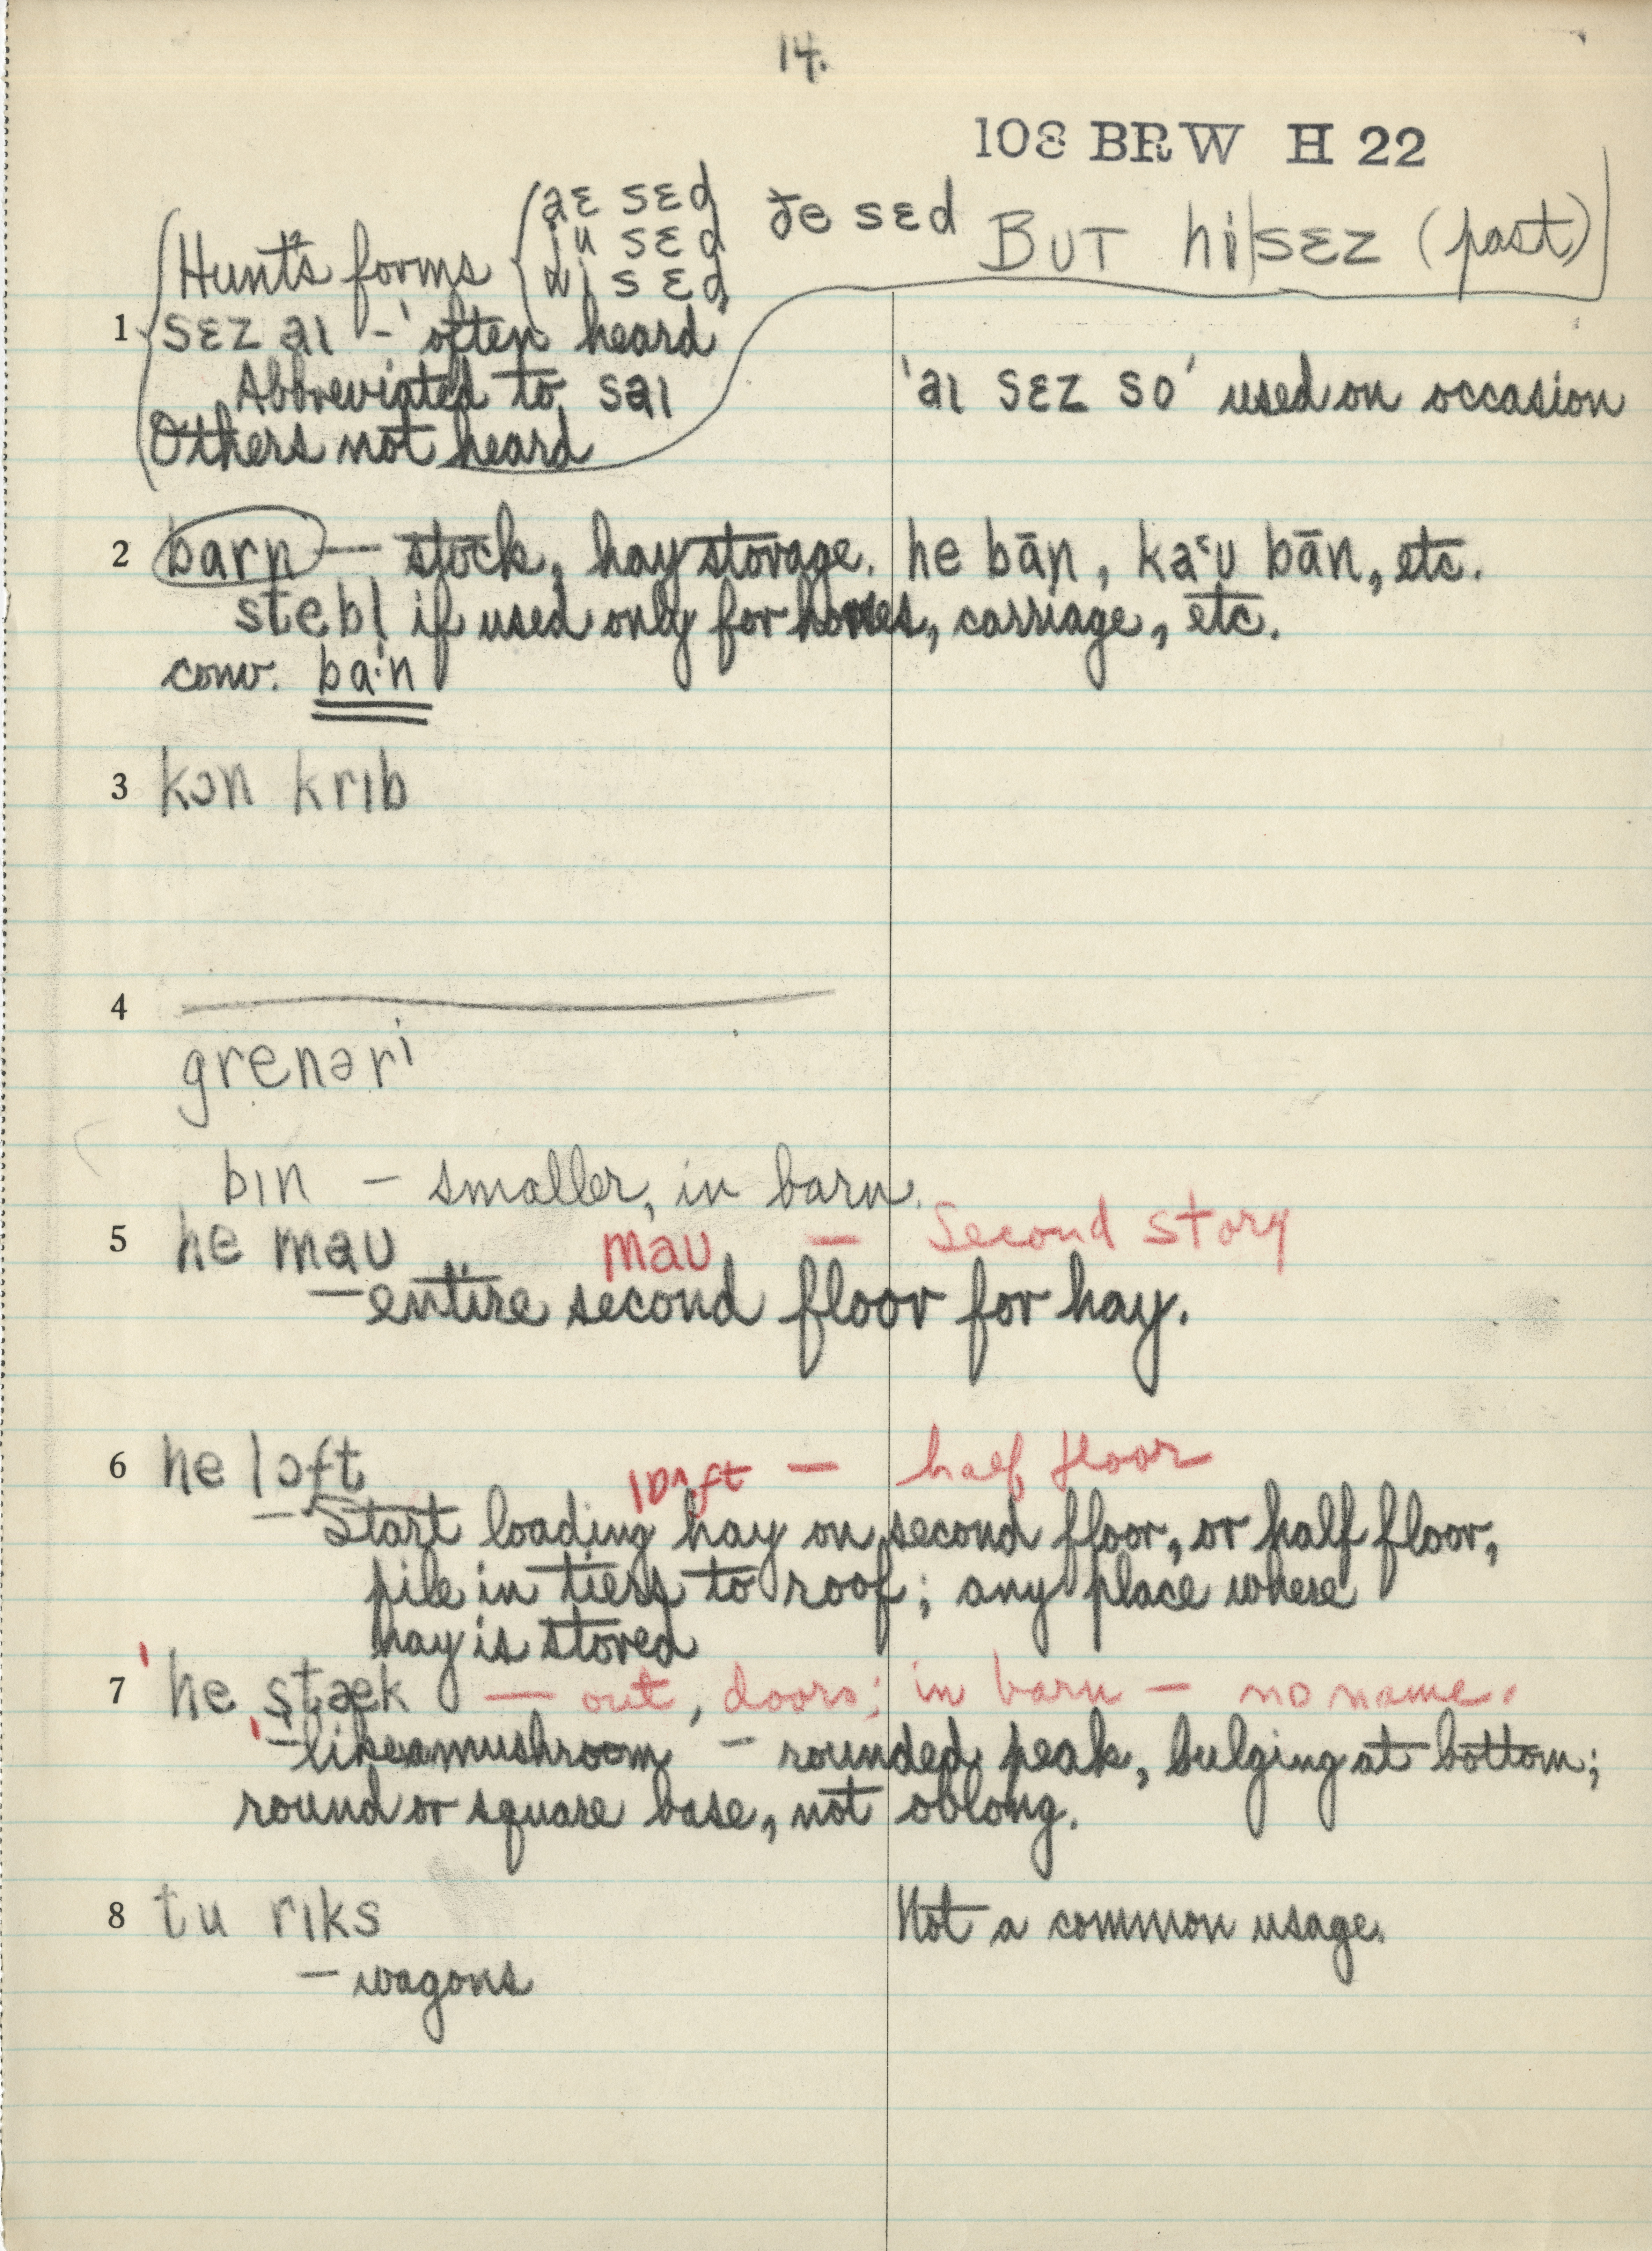 14.
108 BRW H 22
Hunt's forms
aɛ sɛd
ju sɛd
wi sɛd
ɟe sɛd
BUT hi sɛz (past)
1 sɛz aı - often heard
Abbreviated to saı
Others not heard
'aı sɛz so' used on occasion
2 barn — stock, hay storage. he bān, kaˑu bān, etc.
stebl̩ if used only for horses, carriage, etc.
conv. baˑn
3 kɔn krıb
4
grenəri
bın — smaller, in barn.
5 he maʊ maʊ — Second story
— entire second floor for hay.
6 he lɔft lɒ^ft — half floor
— Start loading hay on second floor, or half floor,
pile in tiers to roof; any place where
hay is stored
7 'he stæk — out, doors; in barn — no name.
— like a mushroom — rounded peak, bulging at bottom;
round or square base, not oblong.
8 tu rıks Not a common usage.
— wagons